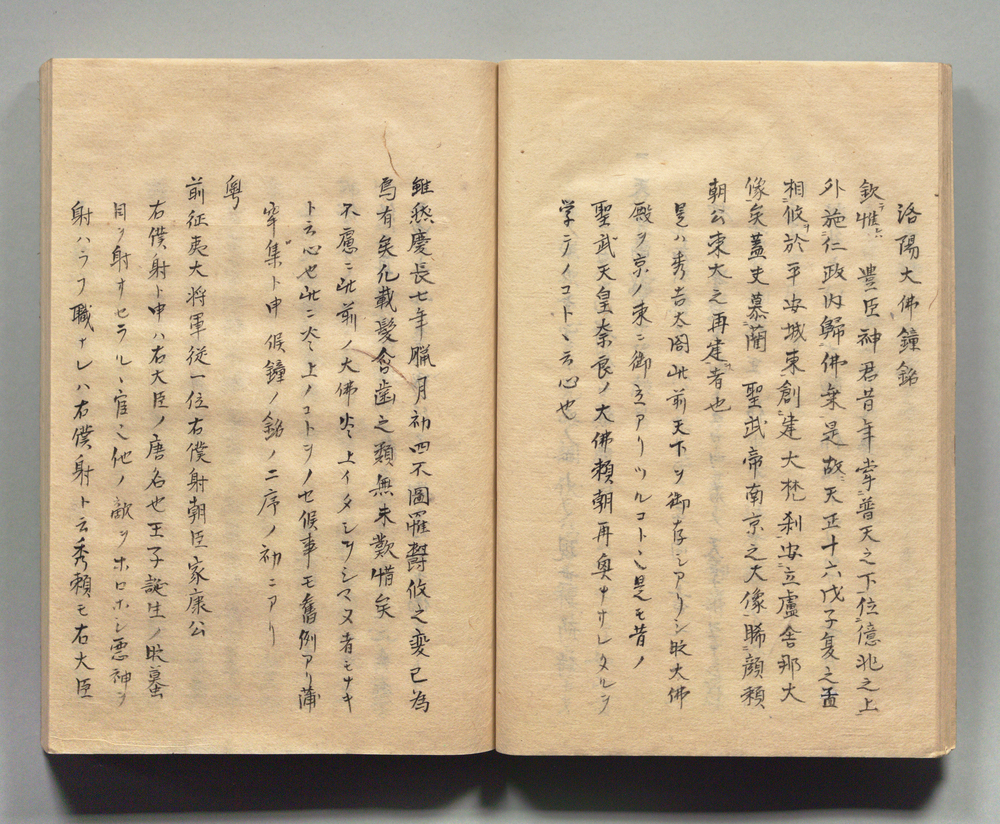 洛陽大佛鐘銘
欽惟豊臣神君昔年掌普天之下位億兆之上
外施仁政内歸佛乗是故天正十六戊子夏之孟
相攸於平安城東創建大梵刹安立盧舎那大
像矣蓋史慕藺聖武帝南京之大像晞顔頼
朝公東大之再建者也
是ハ秀吉太閤此前天下ヲ御存シアリシ時大佛
殿ヲ京ノ東ニ御立アリツルコト是モ昔ノ
聖武天皇奈良ノ大佛頼朝再奥ナサレタルヲ
学テノコトト云心也
雖然慶長七年臘月初四不圖罹欝攸之変已為
烏有矣凡載髪含歯之類無未歎惜矣
不慮ニ此前ノ大佛炎上イタシヲシマヌ者モナキ
ト云心也此ニ炎上ノコトヲノセ候事モ舊例アリ蒲
牢集ト申候鐘ノ銘ノ二序ノ初ニアリ
粤
前征夷大将軍従一位右僕射朝臣家康公
右僕射ト申ハ右大臣ノ唐名也王子誕生ノ時蟇
目ヲ射サセラルヽ官他ノ敵ヲホロホシ悪神ヲ
射ハラフ職ナレハ右僕射ト云秀頼モ右大臣